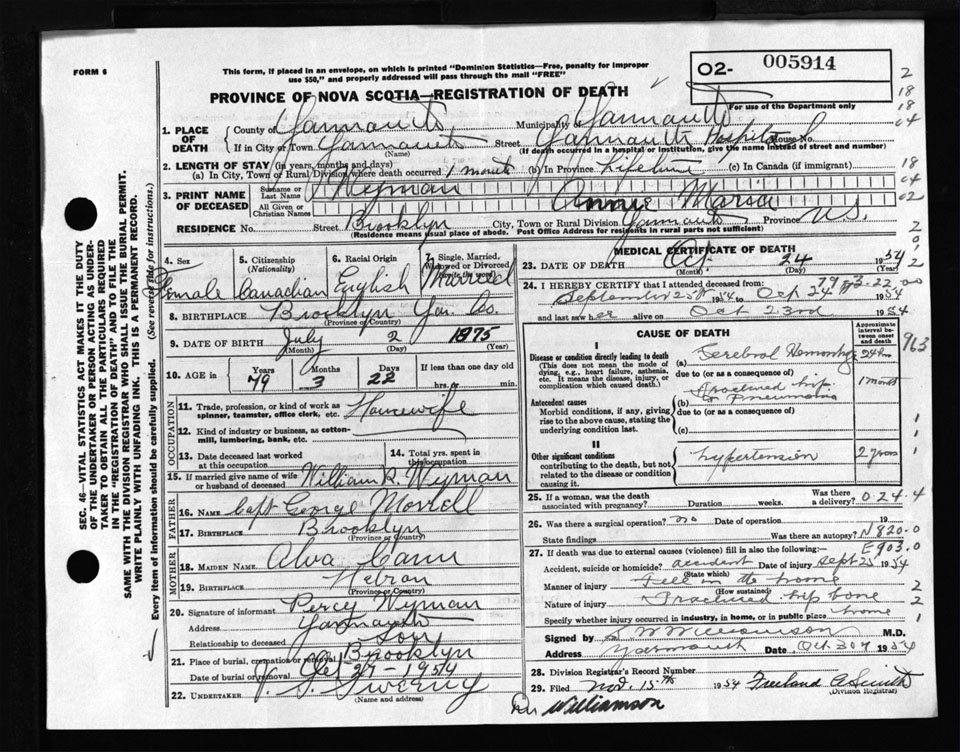 FORM 6
This form, if placed in an envelope, on which is printed "Dominion Statistics—Free, penalty for improper
use $50," and properly addressed will pass through the mail "FREE"
O2- 005914
For use of the Department only
PROVINCE OF NOVA SCOTIA—REGISTRATION OF DEATH
1. PLACE OF DEATH
County of Yarmouth Municipality Yarmouth
If in City or Town Yarmouth Street Yarmouth Hospital House No.
(Name) (If death occurred in a hospital or institution, give the name instead of street and number)
2. LENGTH OF STAY (in years, months and days)
(a) In City, Town or Rural Division where death occurred 1 month (b) In Province Lifetime (c) In Canada (if immigrant)
3. PRINT NAME OF DECEASED
Surname or Last Name Wyman
All Given or Christian Names Annie Maria
RESIDENCE No. Street Brooklyn City, Town or Rural Division Yarmouth Province N.S.
(Residence means usual place of abode. Post Office Address for residents in rural parts not sufficient)
4. Sex Female
5. Citizenship (Nationality) Canadian
6. Racial Origin English
7. Single, Married, Widowed or Divorced (write the word) Married
8. BIRTHPLACE Brooklyn Yar. Co.
(Province or Country)
9. DATE OF BIRTH July 2 1875
(Month) (Day) (Year)
10. AGE in Years 79 Months 3 Days 22 If less than one day old
hrs. or min.
OCCUPATION
11. Trade, profession, or kind of work as
spinner, teamster, office clerk, etc. Housewife
12. Kind of industry or business, as cotton-
mill, lumbering, bank, etc.
13. Date deceased last worked
at this occupation
14. Total yrs. spent in
this occupation
15. If married give name of wife
or husband of deceased William R. Wyman
FATHER
16. NAME Capt George Morrell
17. BIRTHPLACE Brooklyn
(Province or Country)
MOTHER
18. MAIDEN NAME Alva Cann
19. BIRTHPLACE Hebron
(Province or Country)
20. Signature of informant Percy Wyman
Address Yarmouth
Relationship to deceased Son
21. Place of burial, cremation or removal Brooklyn
Date of burial or removal Oct 27-1954
22. UNDERTAKER V. S. Sweeny
(Name and address)
MEDICAL CERTIFICATE OF DEATH
23. DATE OF DEATH Oct 24 1954
(Month) (Day) (Year)
24. I HEREBY CERTIFY that I attended deceased from:
79 3-22.00
September 25th 1954 to Oct 24th 1954
and last saw her alive on Oct 23rd 1954
CAUSE OF DEATH
Approximate interval between onset and death
I
Disease or condition directly leading to death
(This does not mean the mode of
dying, e.g., heart failure, asthenia,
etc. It means the disease, injury, or
complication which caused death.)
(a) Cerebral Hemorrhage 24h
due to (or as a consequence of)
Fractured hip 1 month
Antecedent causes
Morbid conditions, if any, giving
rise to the above cause, stating the
underlying condition last.
(b) & Pneumonia
due to (or as a consequence of)
(c)
II
Other significant conditions
contributing to the death, but not
related to the disease or condition
causing it.
Hypertension 2 years
25. If a woman, was the death
associated with pregnancy? Duration weeks. Was there
a delivery? 0-24-4
26. Was there a surgical operation? no Date of operation 19
State findings Was there an autopsy? N820.0
27. If death was due to external causes (violence) fill in also the following:— E903.0
Accident, suicide or homicide? accident Date of injury Sept 25 1954
(State which)
Manner of injury Fell in the home
(How sustained)
Nature of injury Fractured hip bone
Specify whether injury occurred in industry, in home, or in public place home
Signed by S W Williamson M.D.
Address Yarmouth Date Oct 30th 1954
28. Division Registrar's Record Number
29. Filed Nov. 15th 1954 Freeland A Smith
(Division Registrar)
Dr. Williamson
SEC. 46—VITAL STATISTICS ACT MAKES IT THE DUTY
OF THE UNDERTAKER OR PERSON ACTING AS UNDER-
TAKER TO OBTAIN ALL THE PARTICULARS REQUIRED
IN THE "REGISTRATION OF DEATH" AND TO FILE THE
SAME WITH THE DIVISION REGISTRAR WHO SHALL ISSUE THE BURIAL PERMIT.
WRITE PLAINLY WITH UNFADING INK. THIS IS A PERMANENT RECORD.
Every item of information should be carefully supplied. (See reverse side for instructions.)
2
18
18
04
18
04
02
2
0
2
963
1
1
1
2
2
1